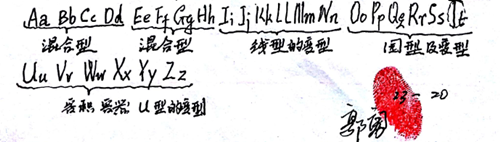 Aa Bb Cc Dd Ee Ff Gg Hh Ii Jj Kk Ll Mm Nn Oo Pp Qq Rr Ss Tt
混合型 混合型 线型的变型 园型及变型
Uu Vv Ww Xx Yy Zz
容积 容器 U型的变型
23-20